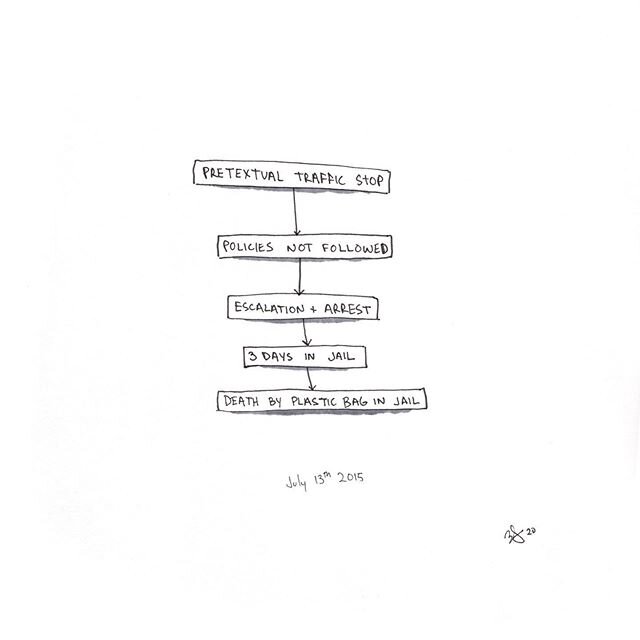 PRETEXTUAL TRAFFIC STOP
POLICIES NOT FOLLOWED
ESCALATION + ARREST
3 DAYS IN JAIL
DEATH BY PLASTIC BAG IN JAIL
July 13th 2015
20